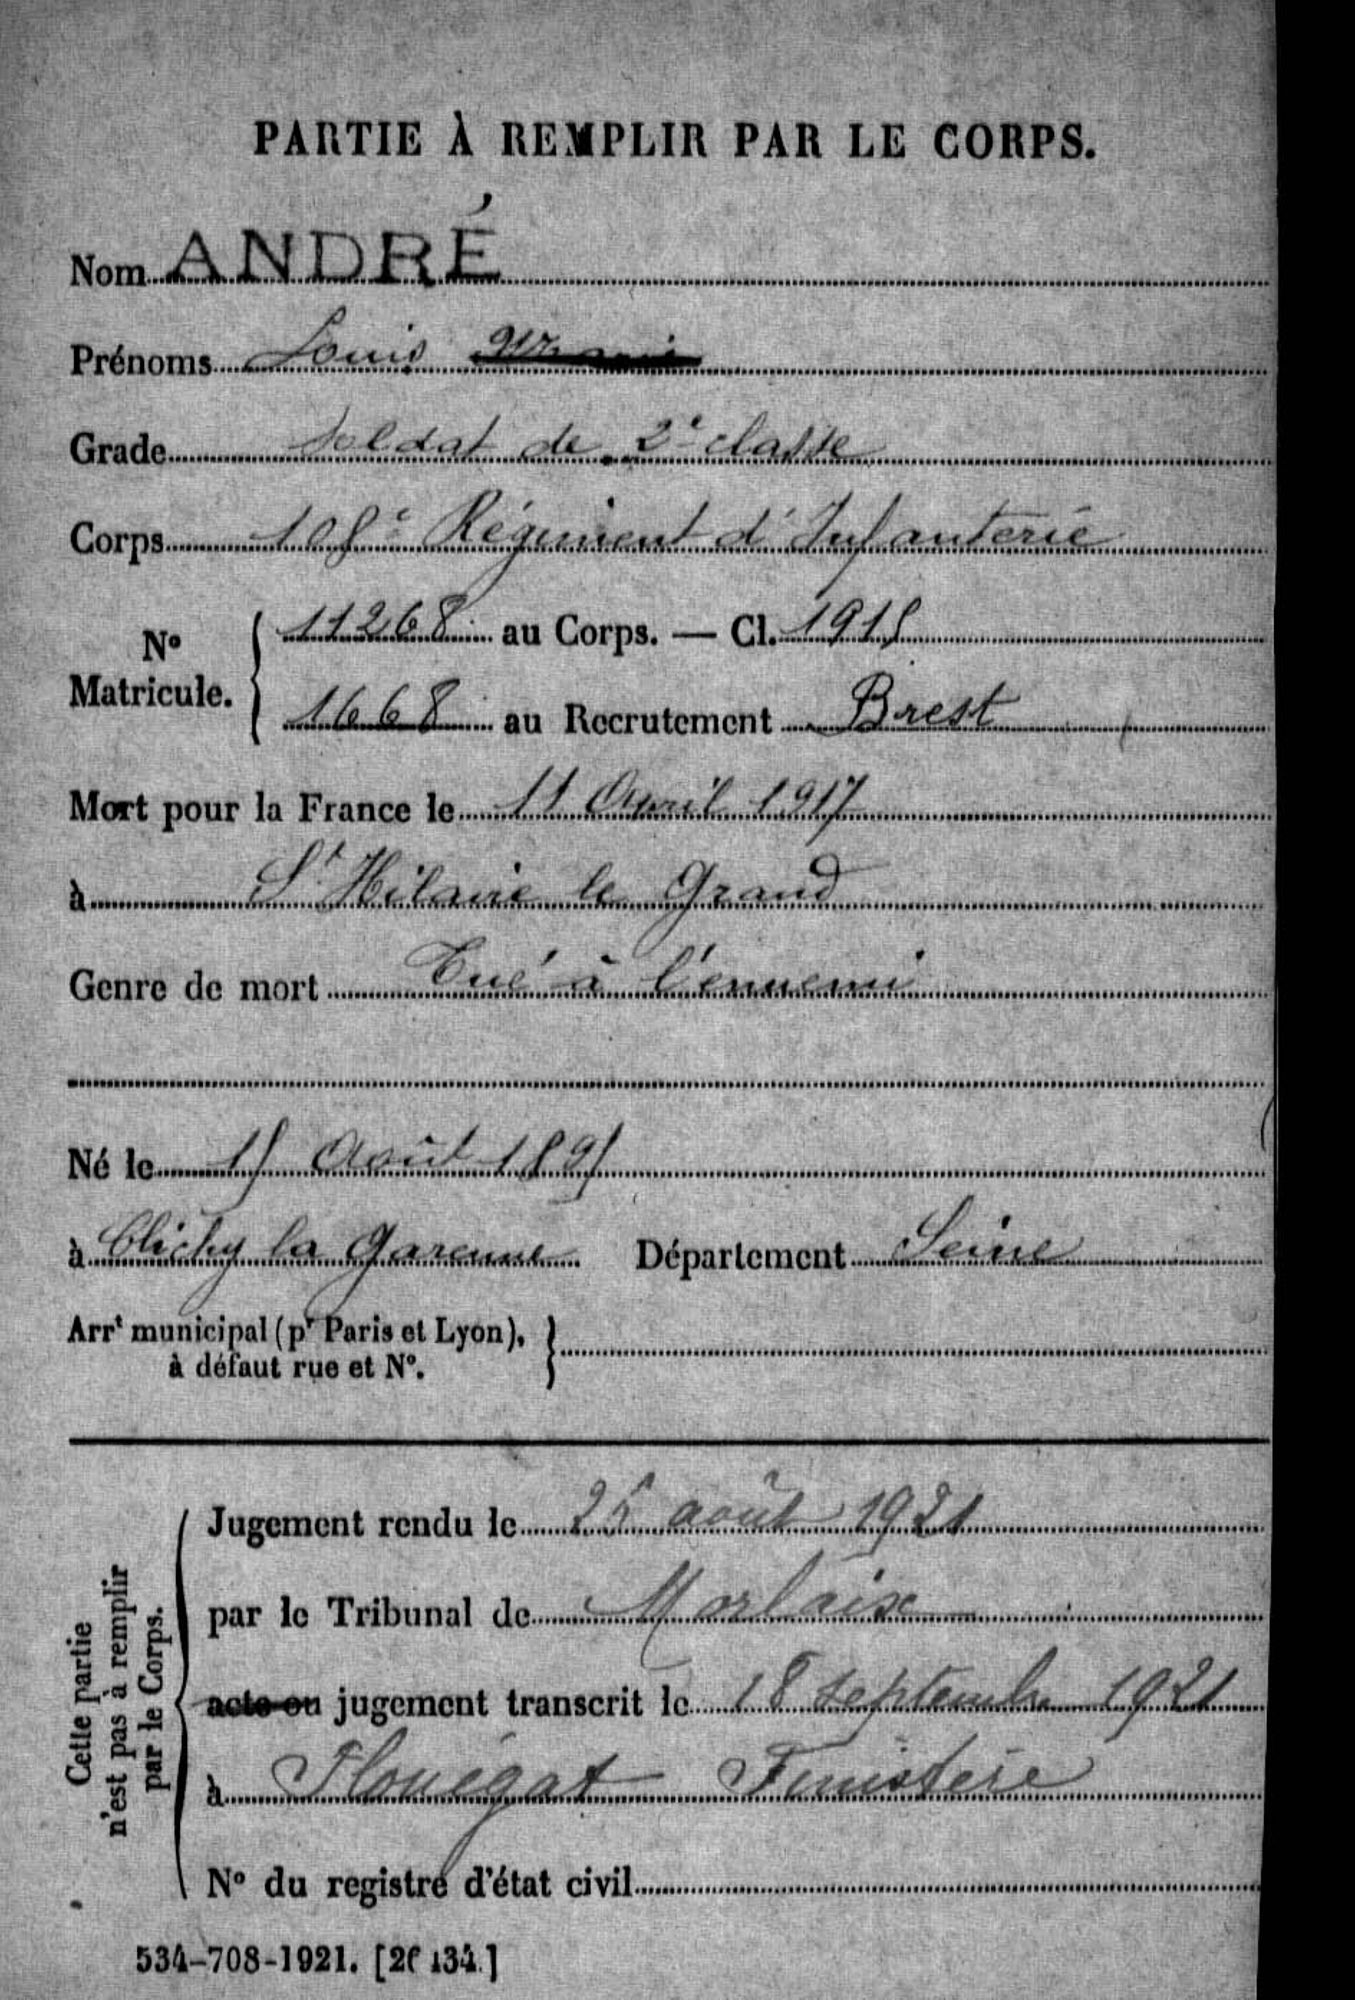 PARTIE À REMPLIR PAR LE CORPS.
Nom ANDRÉ
Prénoms Louis
Grade Soldat de 2e classe
Corps 108e Régiment d'Infanterie
No Matricule. { 11268 au Corps. — Cl. 1915
1668 au Recrutement Brest
Mort pour la France le 11 Avril 1917
à St Hilaire le Grand
Genre de mort Tué à l'ennemi
Né le 15 Août 1895
à Clichy la Garenne Département Seine
Arrt municipal (pr Paris et Lyon), }
à défaut rue et No.
Cette partie
n'est pas à remplir
par le Corps.
Jugement rendu le 25 août 1921
par le Tribunal de Morlaix
acte ou jugement transcrit le 18 septembre 1921
à Plouégat Finistère
No du registre d'état civil
534-708-1921. [26134.]